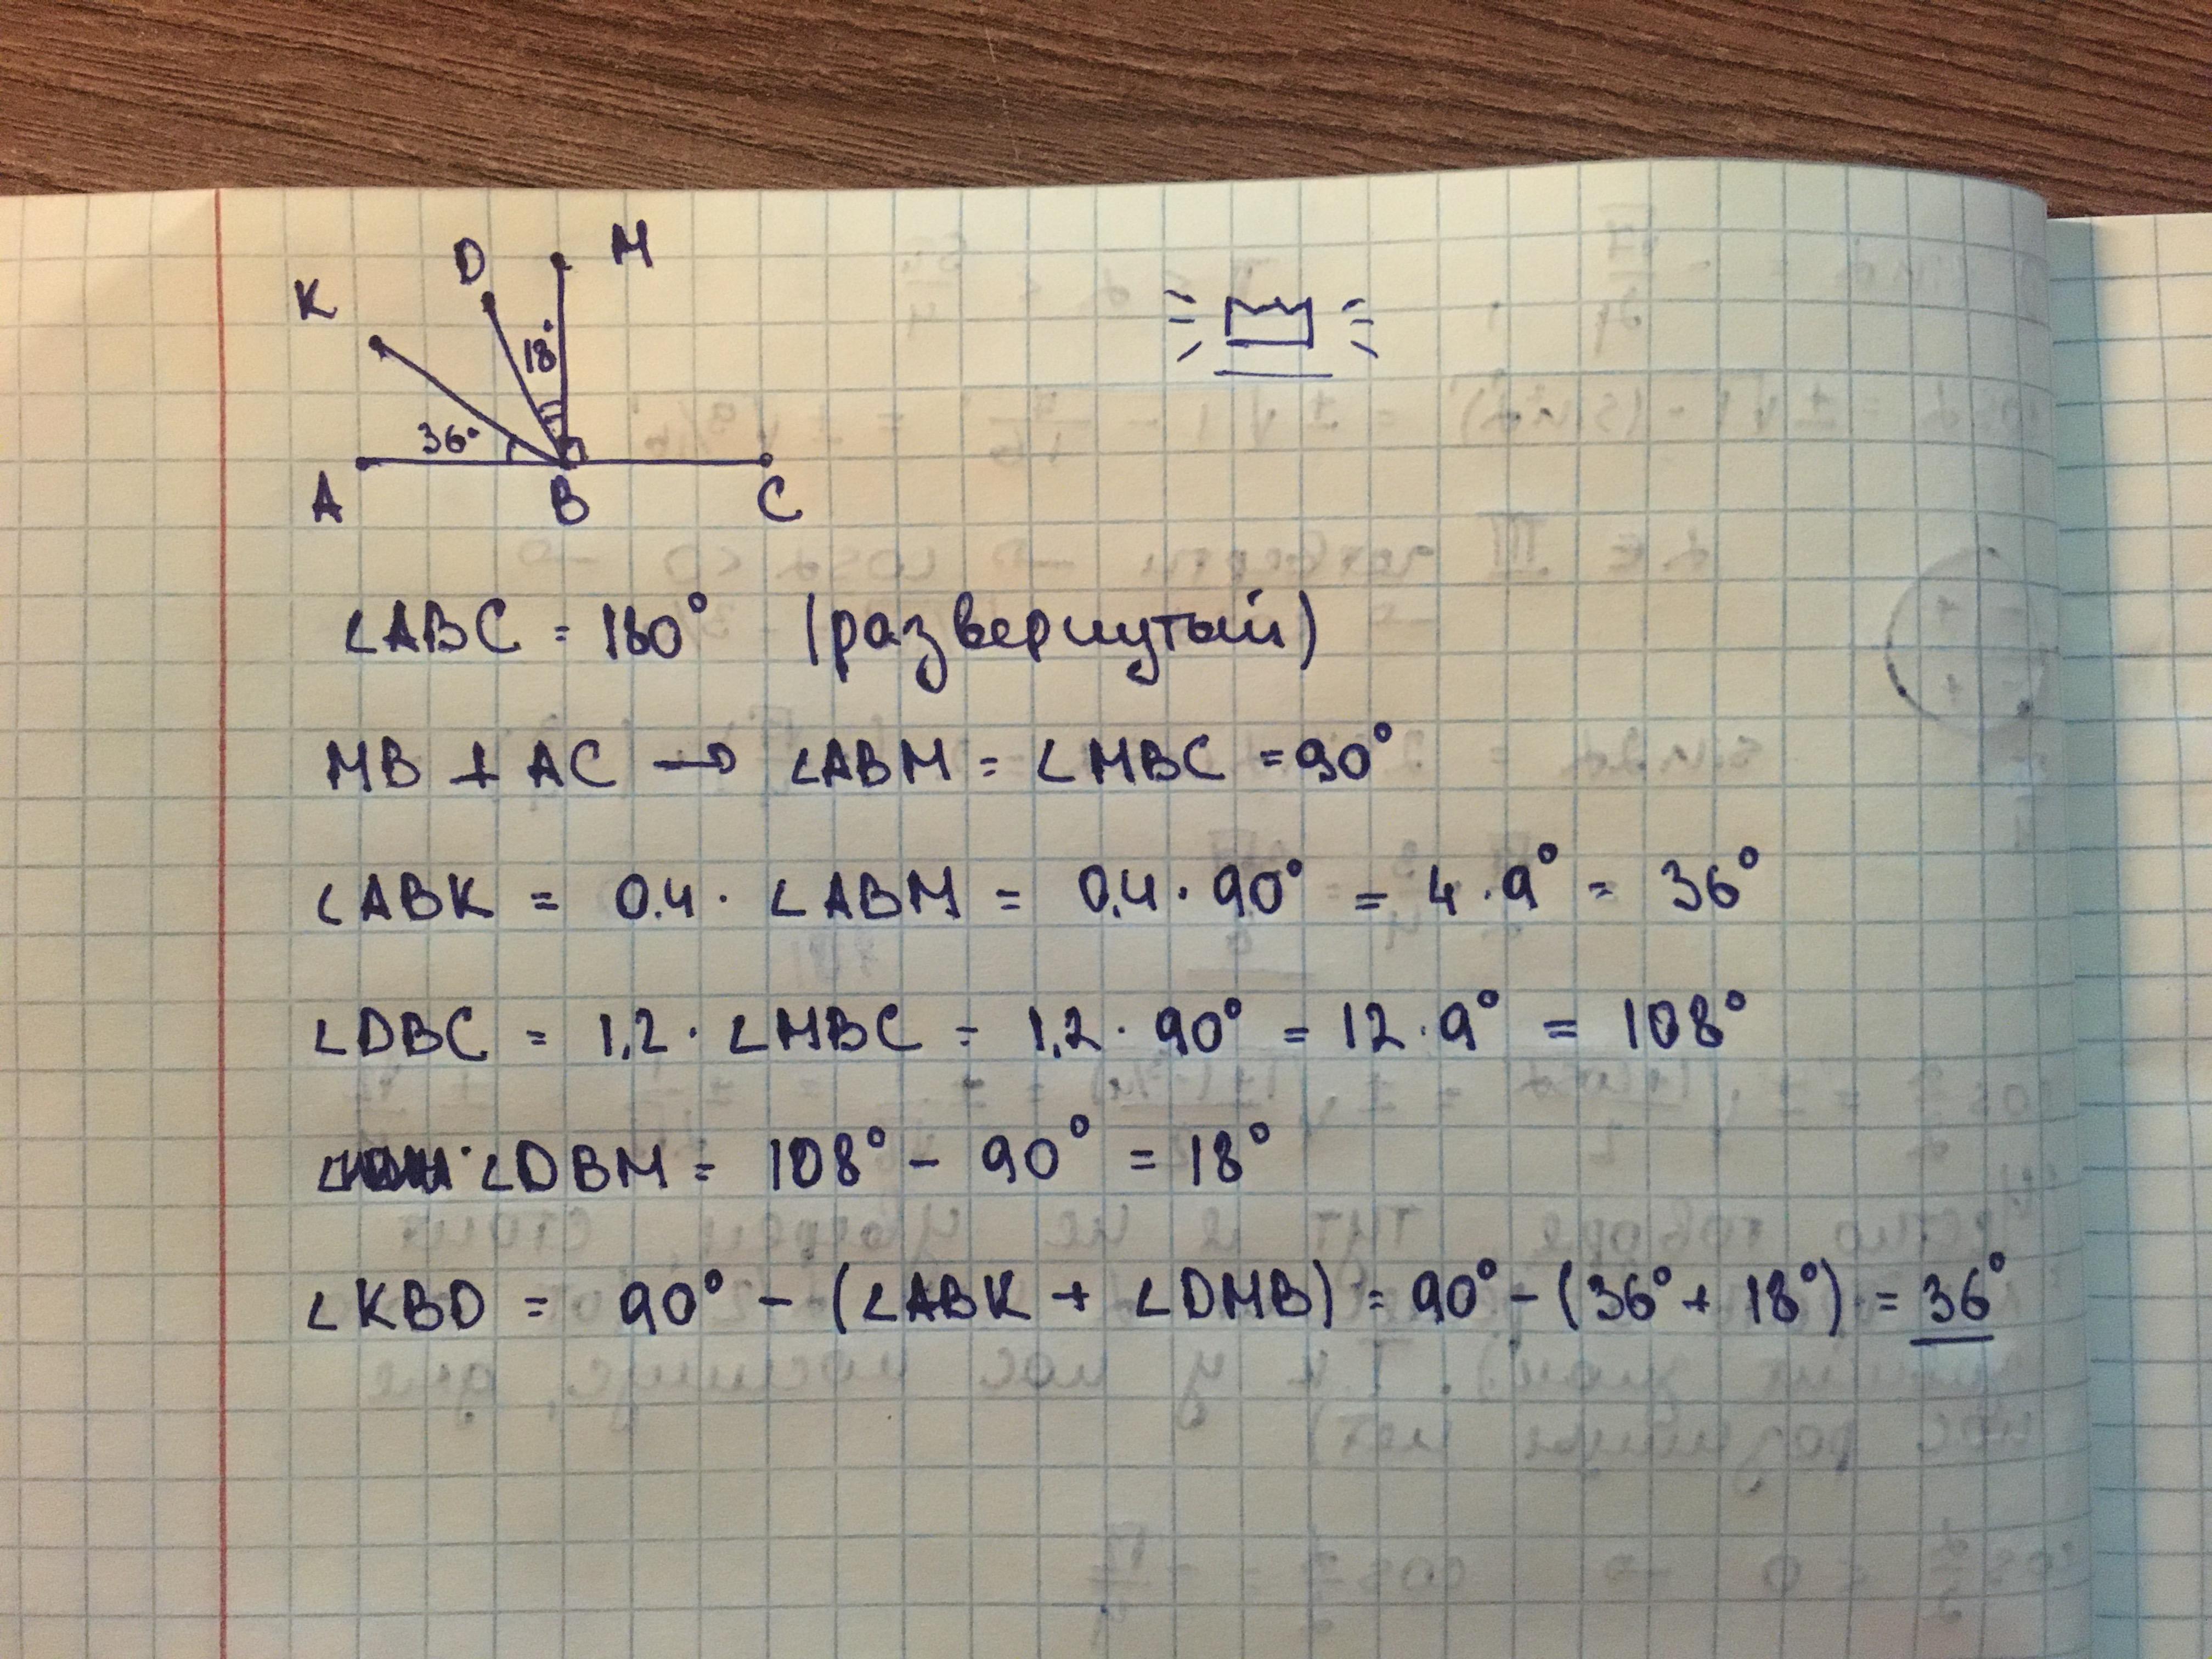 K
D
M
18°
36°
A
B
C
∠ABC = 180° (развернутый)
MB ⊥ AC → ∠ABM = ∠MBC = 90°
∠ABK = 0.4 · ∠ABM = 0,4 · 90° = 4 · 9° = 36°
∠DBC = 1,2 · ∠MBC = 1,2 · 90° = 12 · 9° = 108°
∠DBM = 108° - 90° = 18°
∠KBD = 90° - (∠ABK + ∠DMB) = 90° - (36° + 18°) = 36°